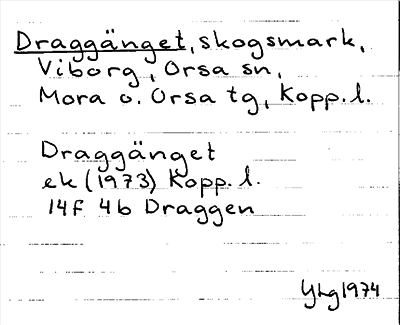 Draggänget, skogsmark,
Viborg, Orsa sn,
Mora o. Orsa tg, Kopp. l.
Draggänget
ek (1973) Kopp. l.
14F 4b Draggen
YLg 1974